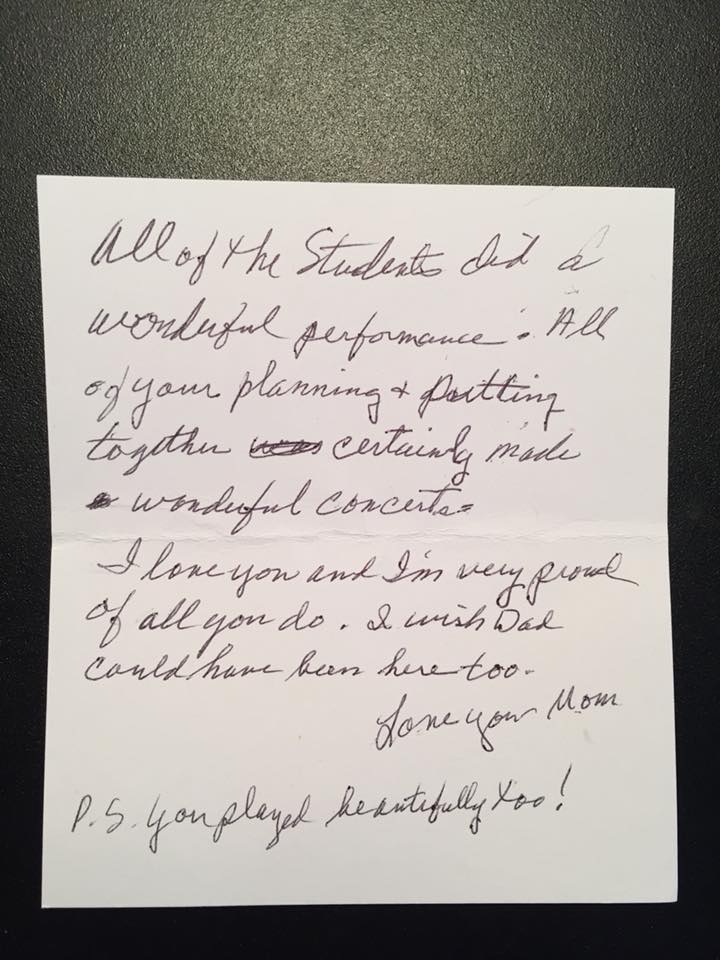 All of the Students did a
wonderful performance. All
of your planning + putting
together was certainly made
wonderful concerts.
I love you and I'm very proud
of all you do. I wish Dad
could have been here too.
Love you Mom
P.S. you played beautifully too!